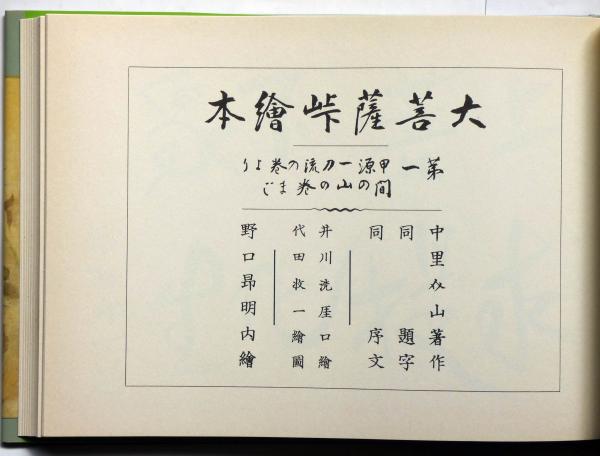 大菩薩峠繪本
第一
甲源一刀流の巻より
間の山の巻まで
中里介山著作
同 題字
同 序文
井川洗厓口繪
代田收一繪圖
野口昂明内繪